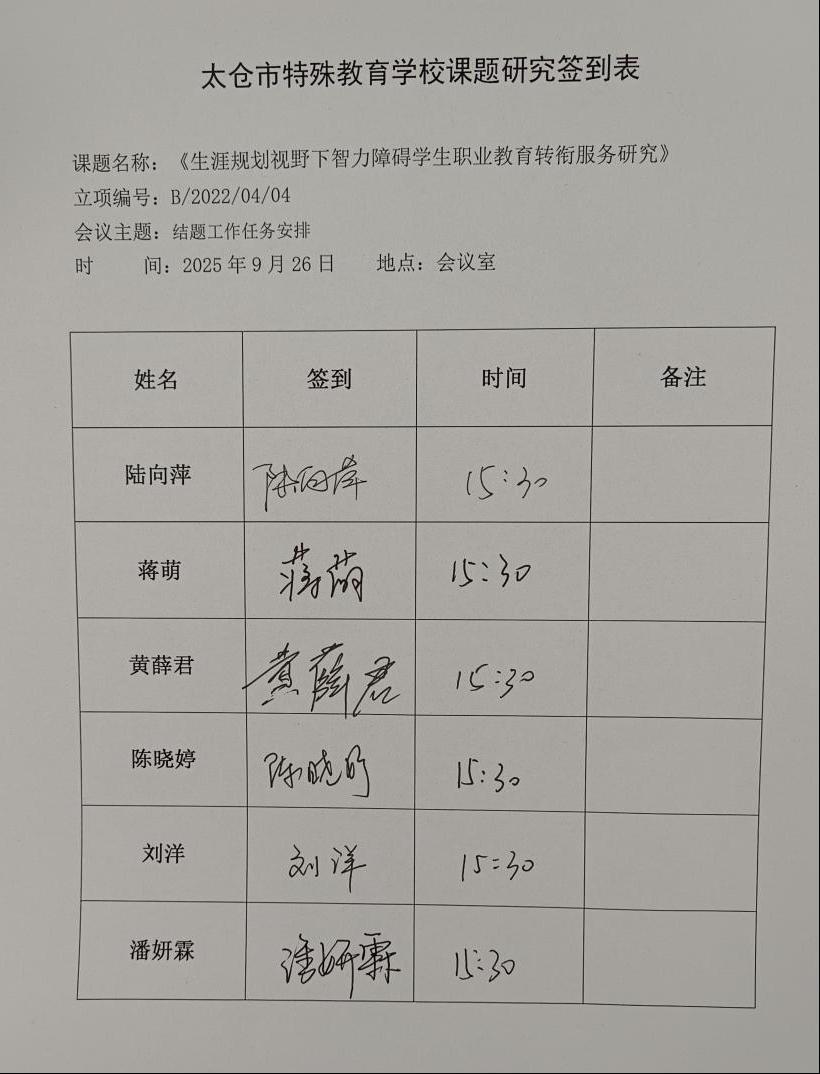 太仓市特殊教育学校课题研究签到表
课题名称：《生涯规划视野下智力障碍学生职业教育转衔服务研究》
立项编号：B/2022/04/04
会议主题：结题工作任务安排
时　　间：2025年9月26日　　地点：会议室
姓名 签到 时间 备注
陆向萍 陆向萍 15:30
蒋萌 蒋萌 15:30
黄薛君 黄薛君 15:30
陈晓婷 陈晓婷 15:30
刘洋 刘洋 15:30
潘妍霖 潘妍霖 15:30